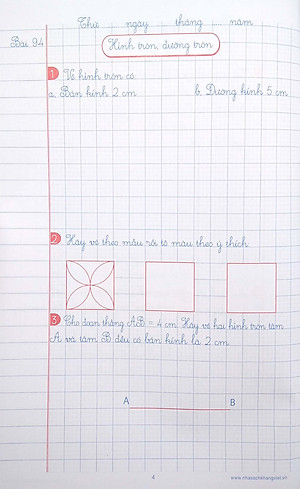 Thứ ngày tháng năm
Bài 94
Hình tròn, đường tròn
1 Vẽ hình tròn có:
a. Bán kính 2 cm b. Đường kính 5 cm
2 Hãy vẽ theo mẫu rồi tô màu theo ý thích
3 Cho đoạn thẳng AB = 4 cm. Hãy vẽ hai hình tròn tâm
A và tâm B đều có bán kính là 2 cm
A B
4
www.nhasachehangviet.vn